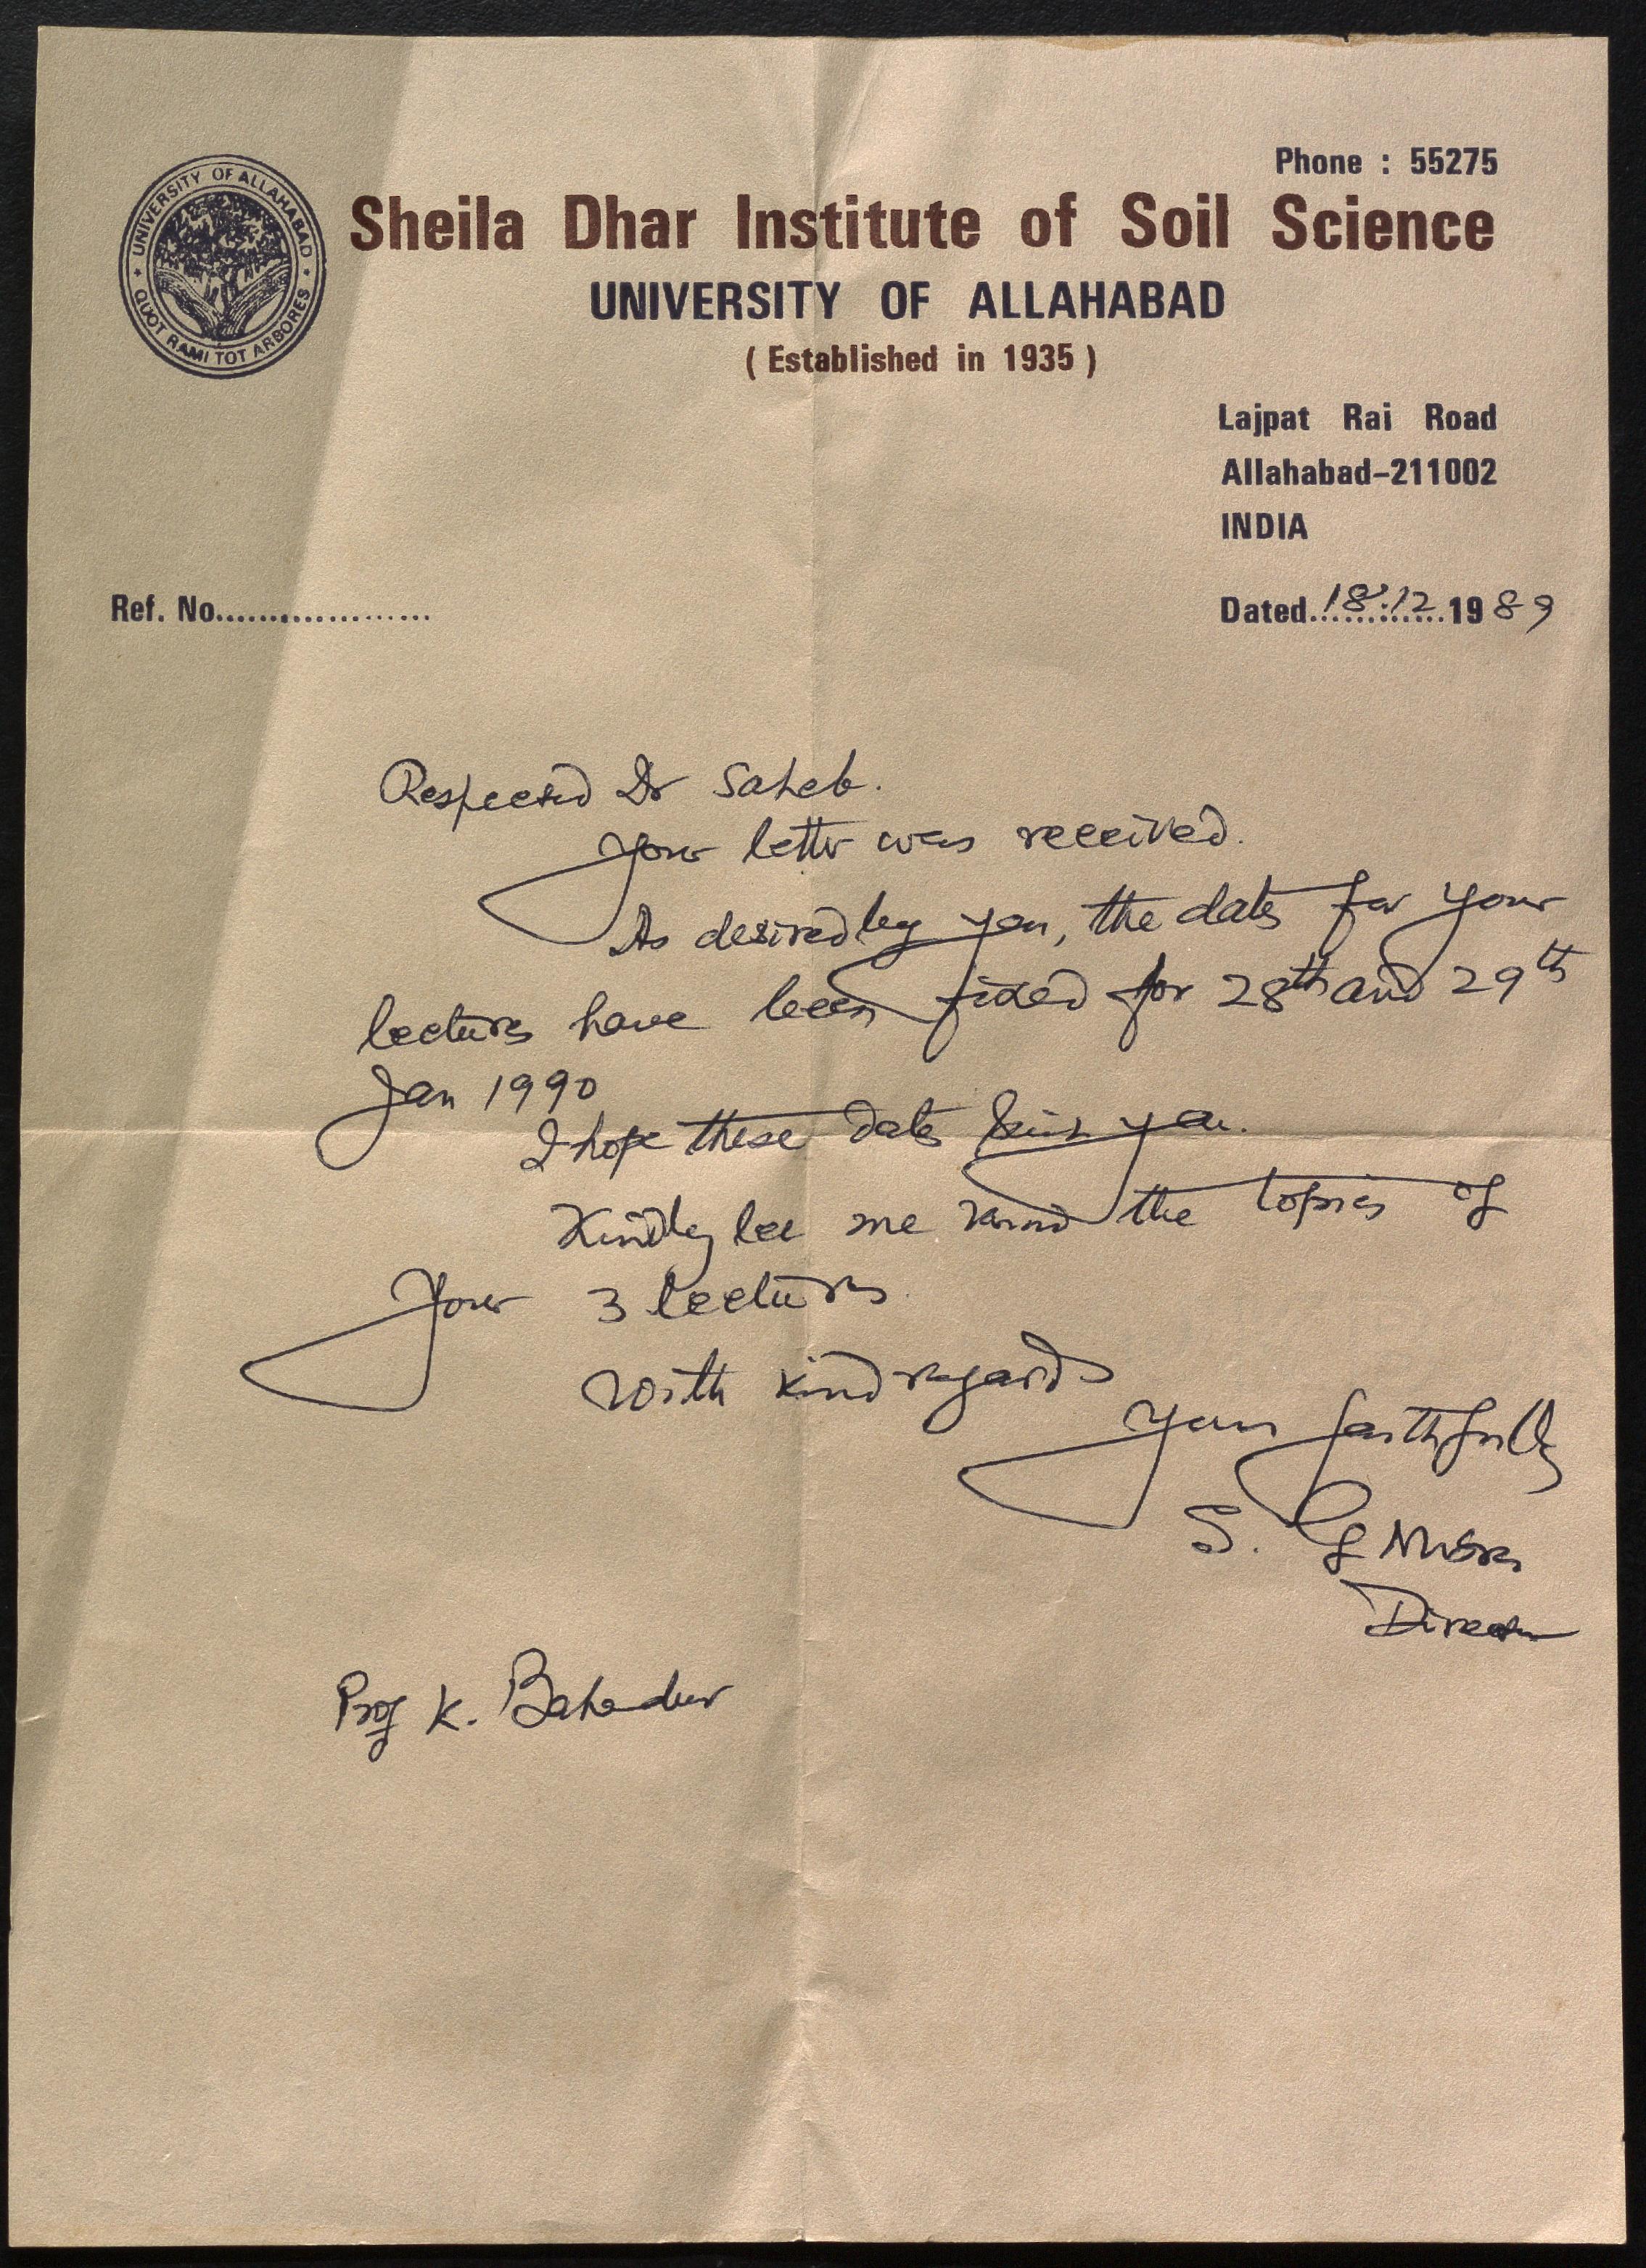 UNIVERSITY OF ALLAHABAD
QUOT RAMI TOT ARBORES
Phone : 55275
Sheila Dhar Institute of Soil Science
UNIVERSITY OF ALLAHABAD
( Established in 1935 )
Lajpat Rai Road
Allahabad-211002
INDIA
Ref. No....................
Dated 18.12 1989
Respected Dr Saheb.
Your letter was received.
As desired by you, the dates for your
lectures have been fixed for 28th and 29th
Jan 1990
I hope these dates suit you.
Kindly let me know the topics of
your 3 lectures
With kind regards
Yours faithfully
S. G Misra
Director
Prof K. Bahadur